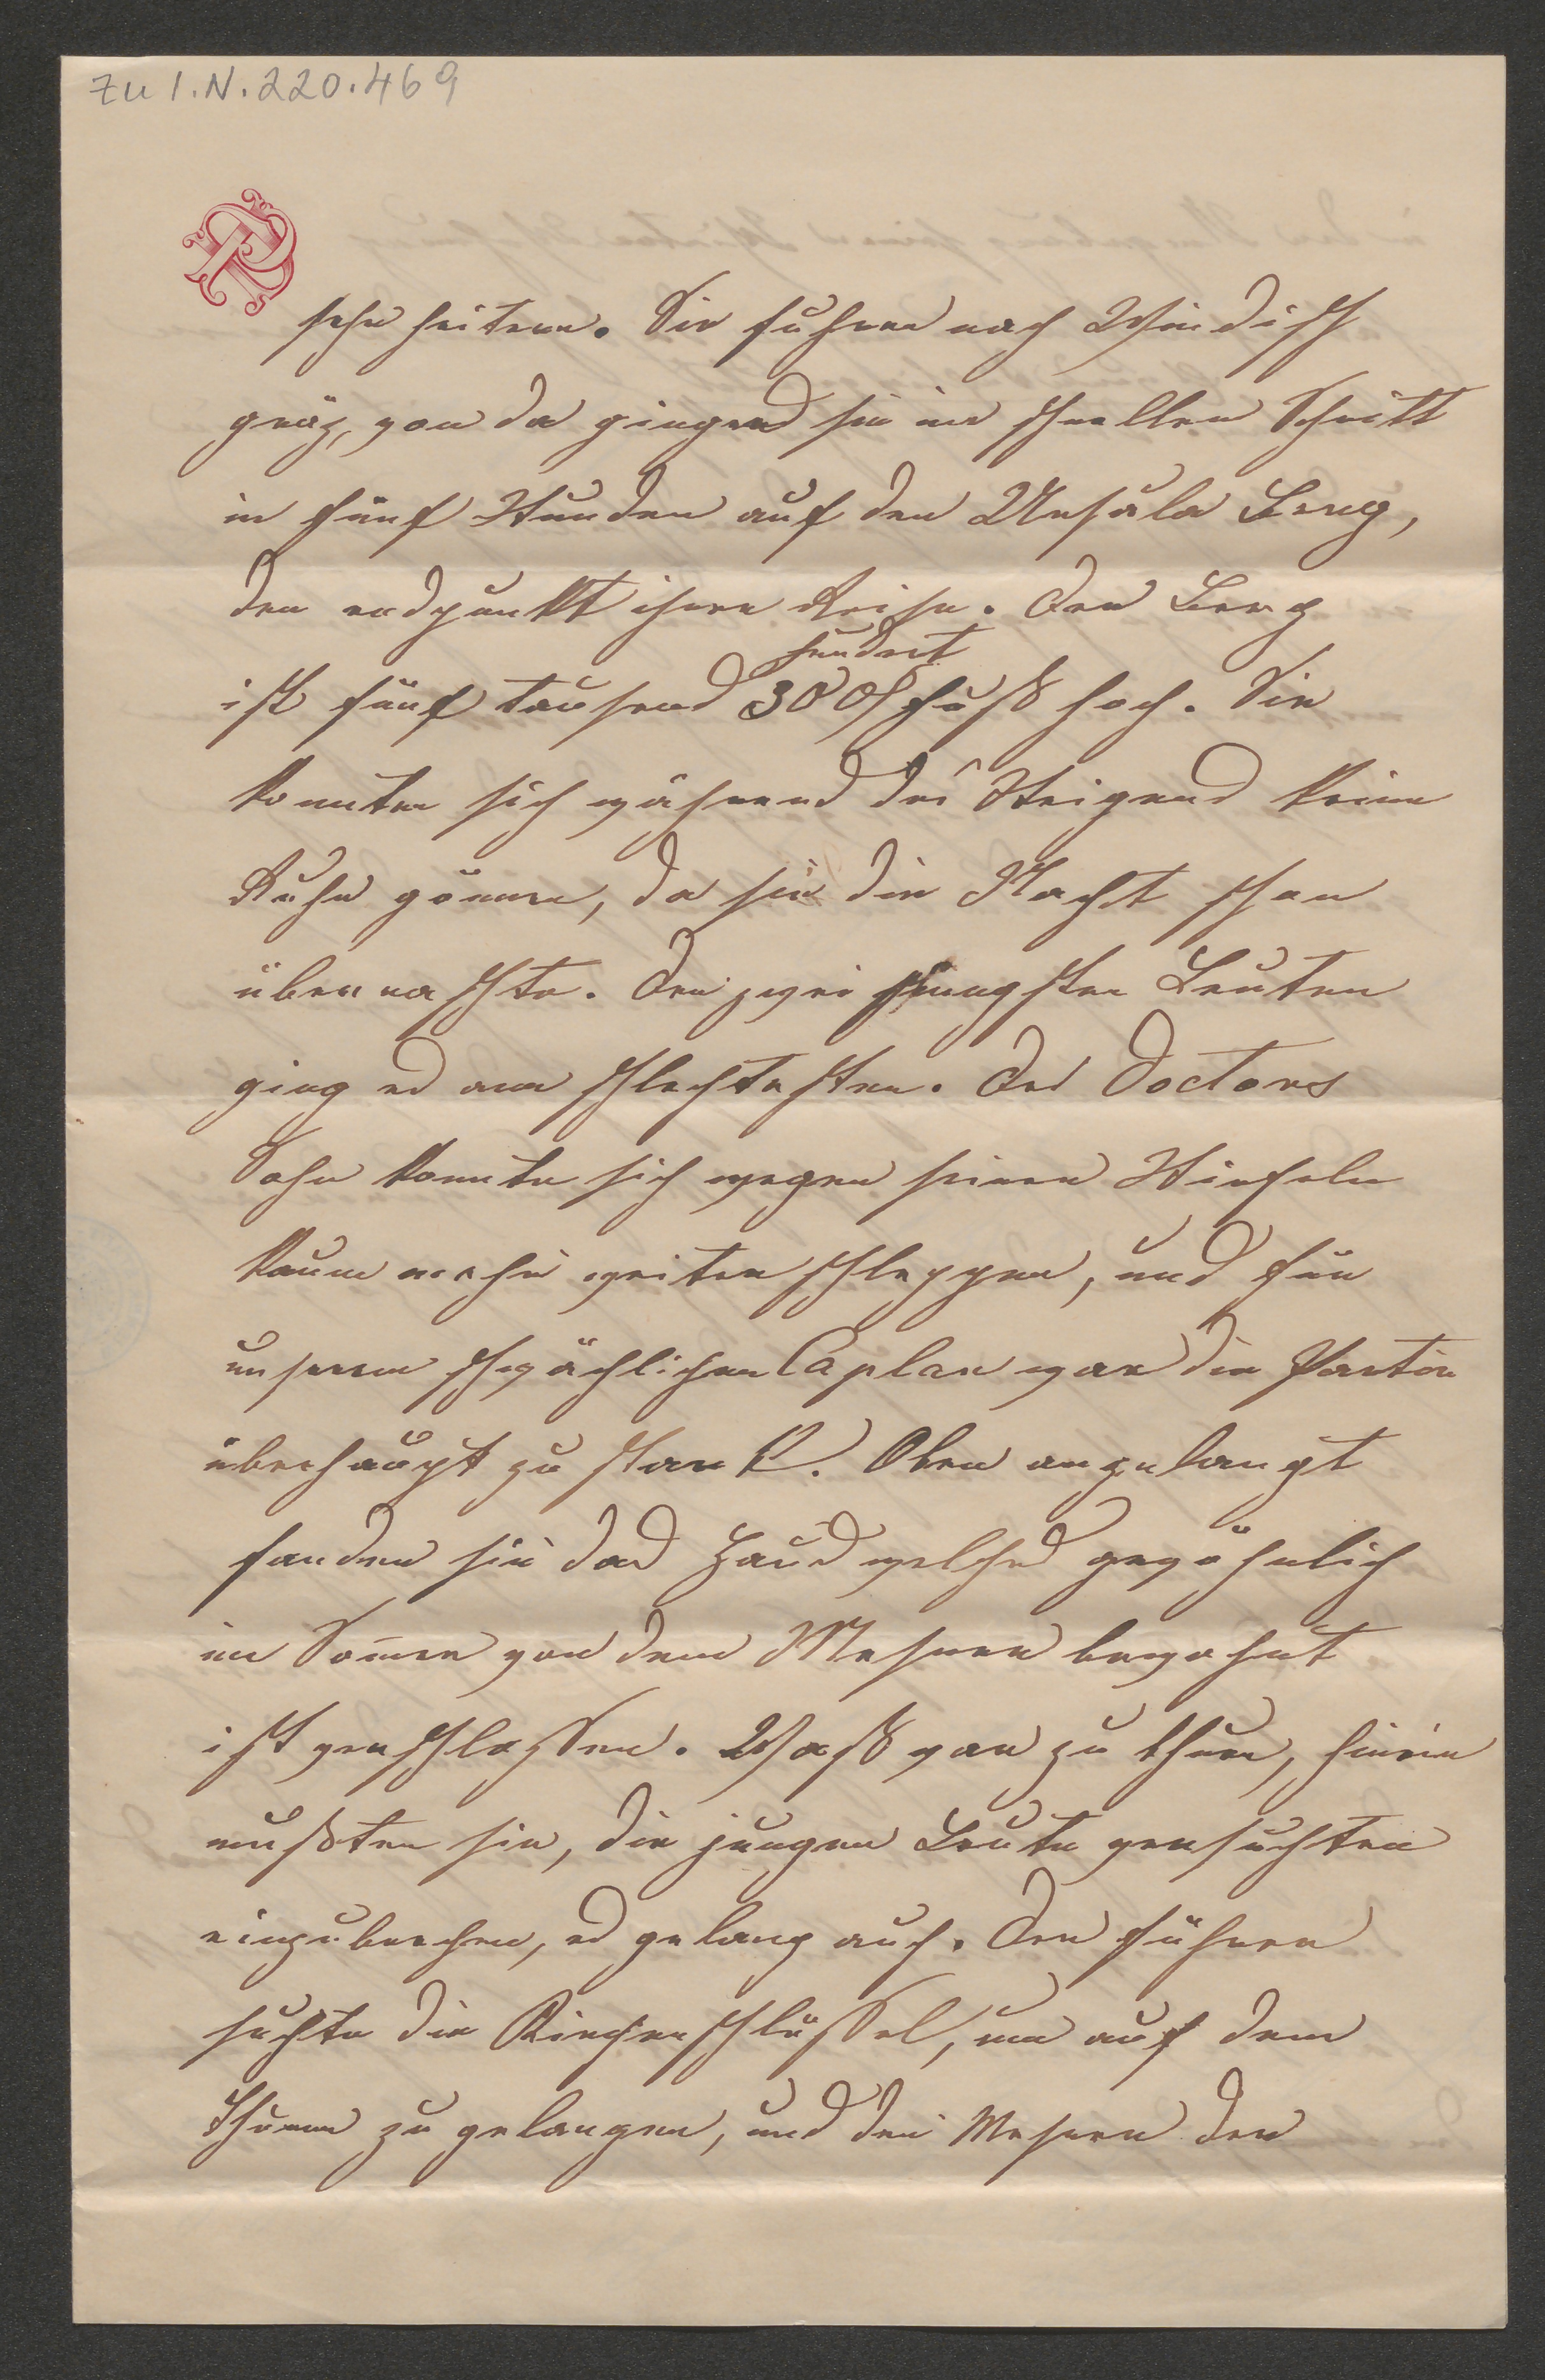 Zu I.N. 220.469
sehr heiteren. Sie fuhren nach Windisch
gräz, von da gingen sie im schnellen Schritt
in fünf Stunden auf den Ursula Berg,
den endpunkt ihrer Reise. Der Berg
hundert
ist fünf tausend 300 fuß hoch. Sie
konnten sich während des Steigens keine
Ruhe gönnen, da sie die Nacht schon
überraschte. Den zwei jüngsten Leuten
ging es am schlechtesten. Des Doctors
Sohn konnte sich wegen seinen Stiefeln
kaum mehr weiter schleppen, und für
unseren schwächlichen Caplan war die Partie
überhaupt zu stark. Oben angelangt
fanden sie das Haus welches gewöhnlich
im Som̅er von dem Messner bewohnt
ist verschlossen. Waß war zu thuen, hinein
mußten sie, die jungen Leute versuchten
einzubrechen, es gelang auch. Der führer
suchte die Kirchenschlüssel, um auf dem
Thurm zu gelangen, und den Messner der